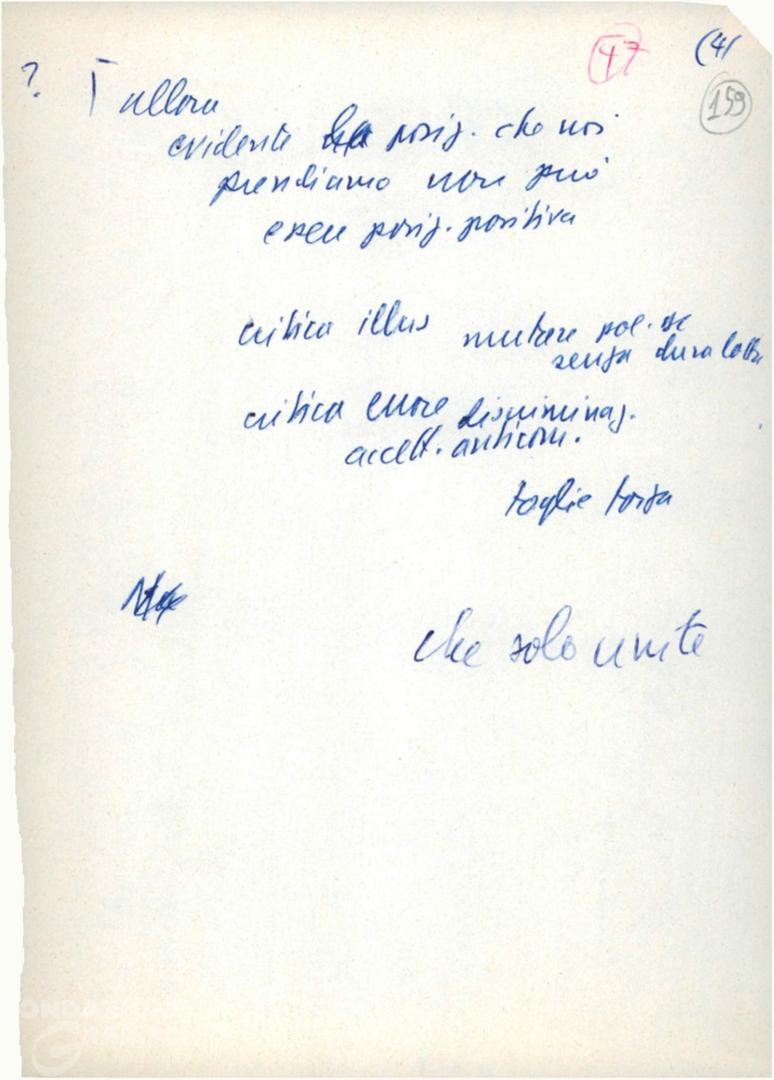 47 (4/
159
? allora
evidente posiz. che noi
prendiamo non può
essere posiz. positiva
critica illus mutare pol. DC
senza dura lotta
critica errore discriminaz.
accett. anticom.
toglie forza
che solo unite